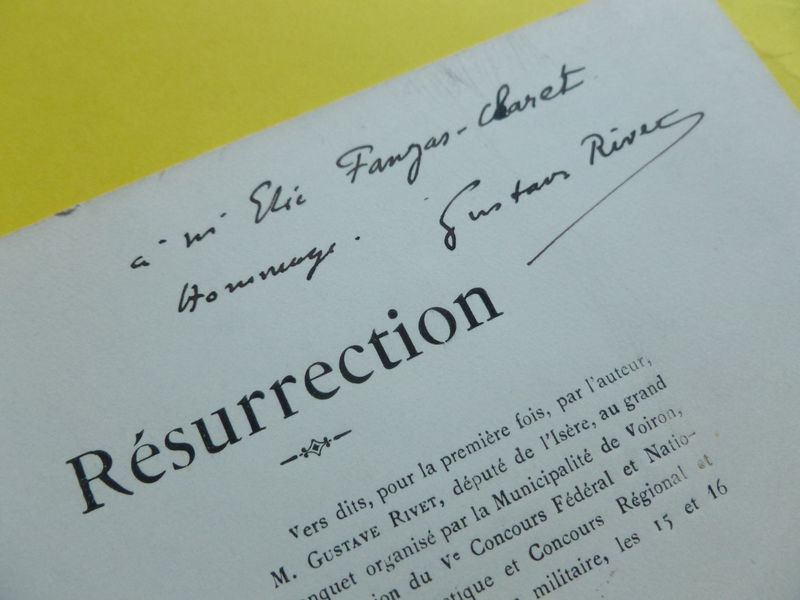 à Mr Elie Fanjas-Claret
Hommage. Gustave Rivet
Résurrection
Vers dits, pour la première fois, par l'auteur,
M. GUSTAVE RIVET, député de l'Isère, au grand
nquet organisé par la Municipalité de Voiron,
ion du Ve Concours Fédéral et Natio-
tique et Concours Régional et
militaire, les 15 et 16